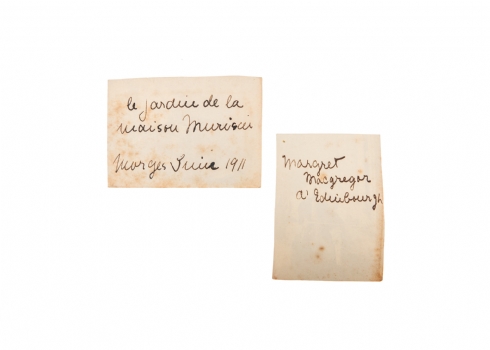 le jardin de la
maison Murisier
Morges Juin 1911
Margret
Macgregor
d'Edinbourgh